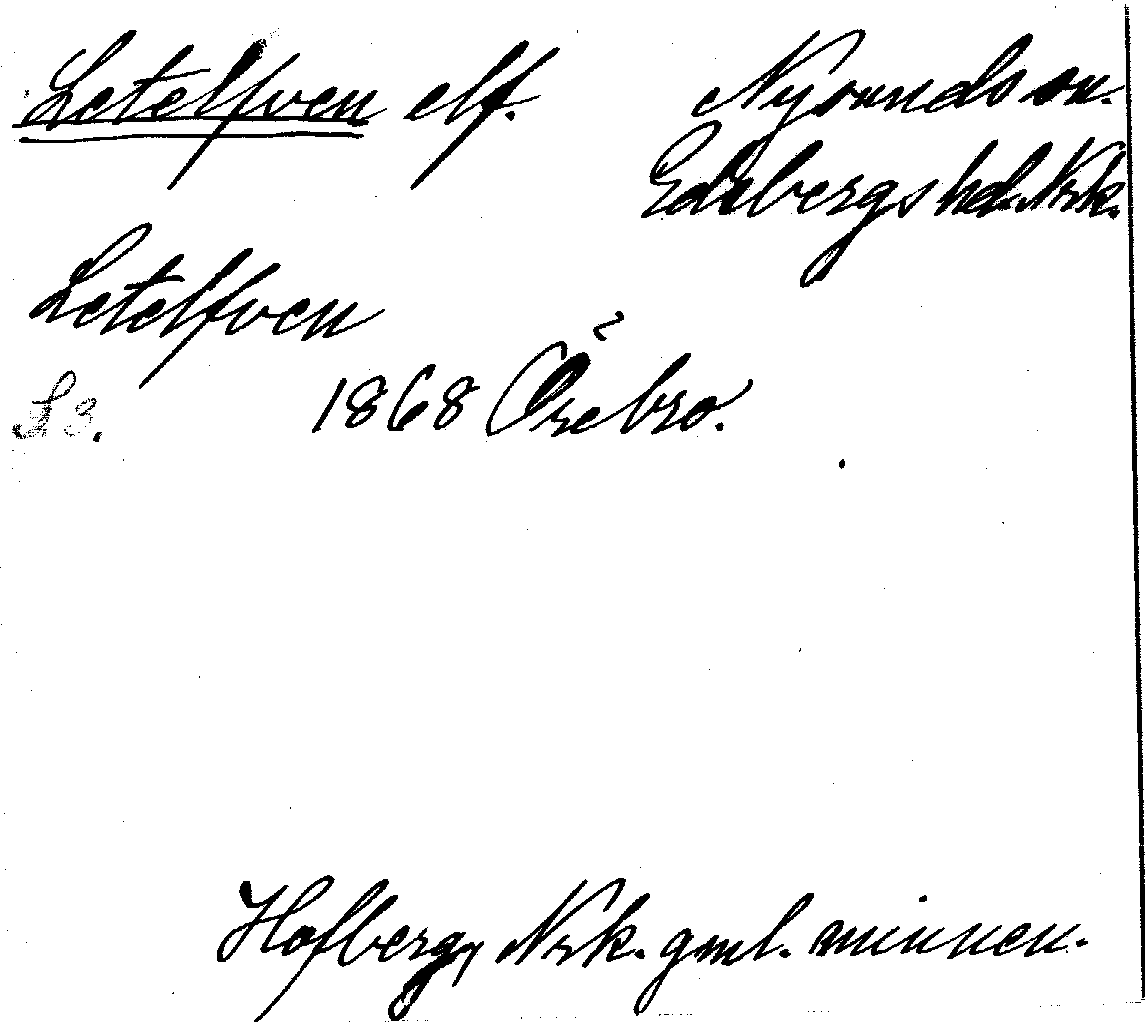 Letelfven elf. Nysunds sn.
Edsbergs hd. Nrk.
Letelfven
L 3. 1868 Örebro.
Hofberg, Nrk. gml. minnen.